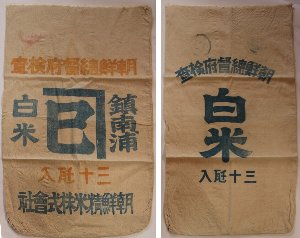 朝鮮總督府檢査
鎮南浦
白米
三十瓩入
朝鮮精米株式會社
朝鮮總督府檢査
白米
三十瓩入